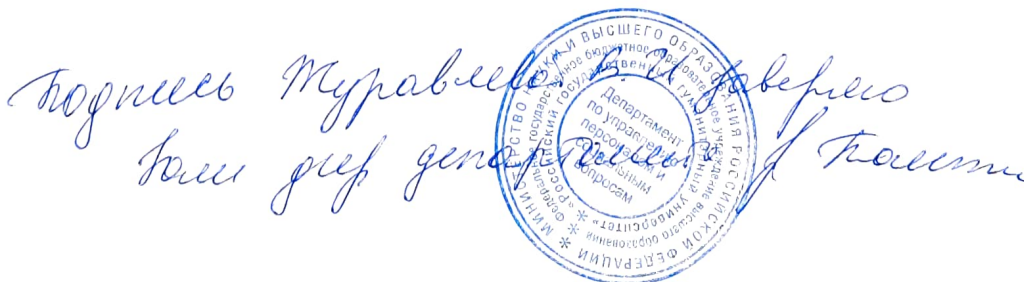 Подпись Журавлевой В. И заверяю
департамента
МИНИСТЕРСТВО НАУКИ И ВЫСШЕГО ОБРАЗОВАНИЯ РОССИЙСКОЙ ФЕДЕРАЦИИ
Федеральное государственное бюджетное образовательное учреждение высшего образования
«Российский государственный гуманитарный университет»
Департамент
по управлению
персоналом и
социальным
вопросам